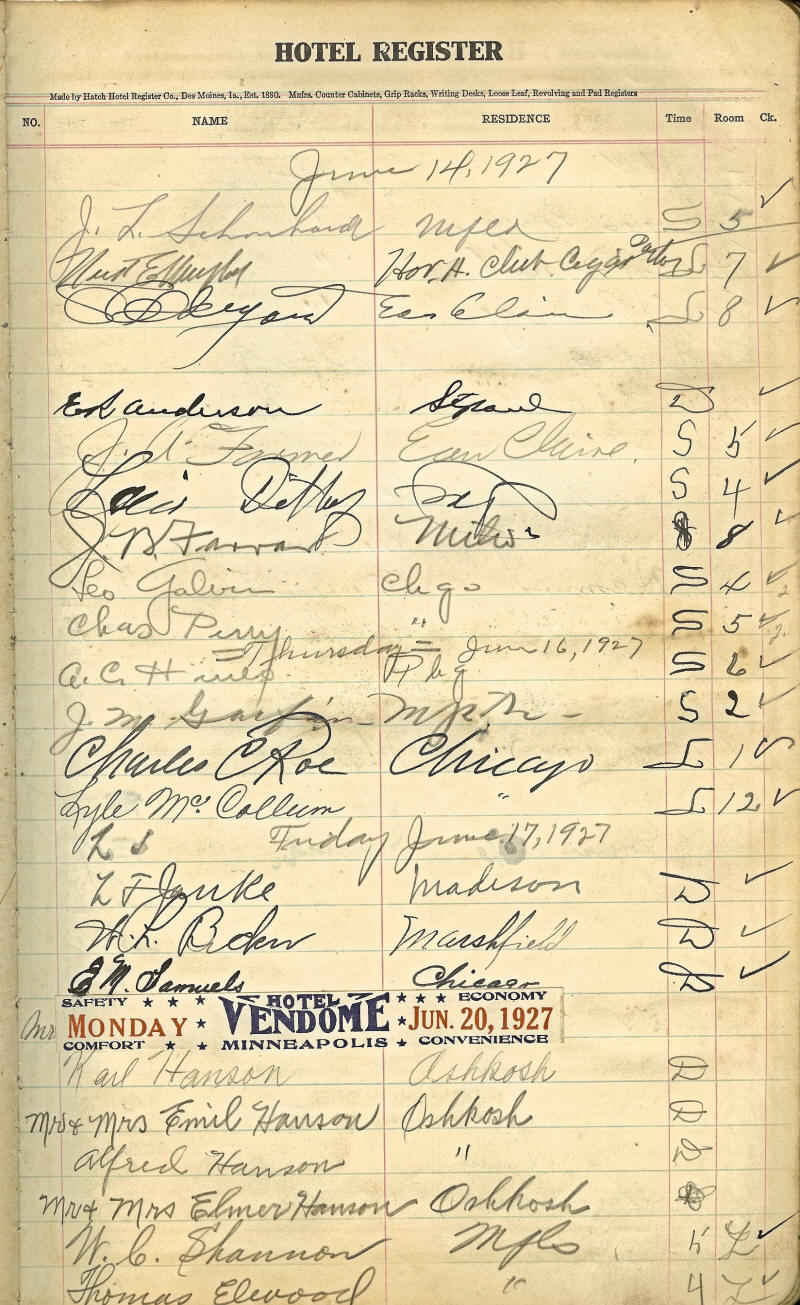 HOTEL REGISTER
Made by Hatch Hotel Register Co., Des Moines, Ia., Est. 1880. Mnfrs. Counter Cabinets, Grip Racks, Writing Desks, Loose Leaf, Revolving and Pad Registers
NO. NAME RESIDENCE Time Room Ck.
June 14, 1927
J. L. S 5 ✓
Hov. H. Club 7 ✓
Eau Claire L 8 ✓
E R Anderson St Paul D ✓
Eau Claire. S 5 ✓
S 4 ✓
J. B. Farrar 8 ✓
Leo Galvin chgo S 4 ✓ 2
Chas Perry " S 5 ✓ 2
= Thursday = June 16, 1927
A. C. Hines S 6 ✓
J. M. S 2 ✓
Charles C Roe Chicago L 1 ✓
Lyle Mc Collum " L 12 ✓
Friday June 17, 1927
L F Janke Madison D ✓
Marshfield D ✓
E M. Samuels Chicago D ✓
SAFETY ★ ★ ★ HOTEL ★ ★ ★ ECONOMY
Mr MONDAY ★ VENDOME ★ JUN. 20, 1927
COMFORT ★ ★ MINNEAPOLIS ★ CONVENIENCE
Karl Hanson Oshkosh D
Mr & Mrs Emil Hanson Oshkosh D
Alfred Hanson " D
Mr & Mrs Elmer Hanson Oshkosh
W. C. Shannon Mpls 5 L ✓
Thomas Elwood " 4 L ✓